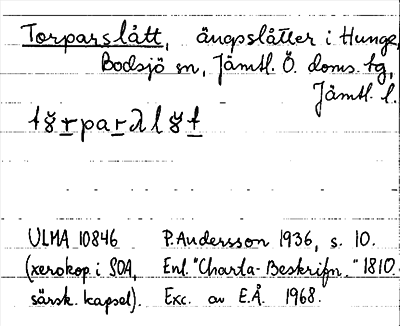 Torparslått, ängsslåtter i Hunge,
Bodsjö sn, Jämtl. Ö. doms. tg,
Jämtl. l.
ULMA 10846 P. Andersson 1936, s. 10.
(xerokop. i SOA, Enl. "Charta-Beskrifn." 1810.
särsk. kapsel). Exc. av E.Å. 1968.